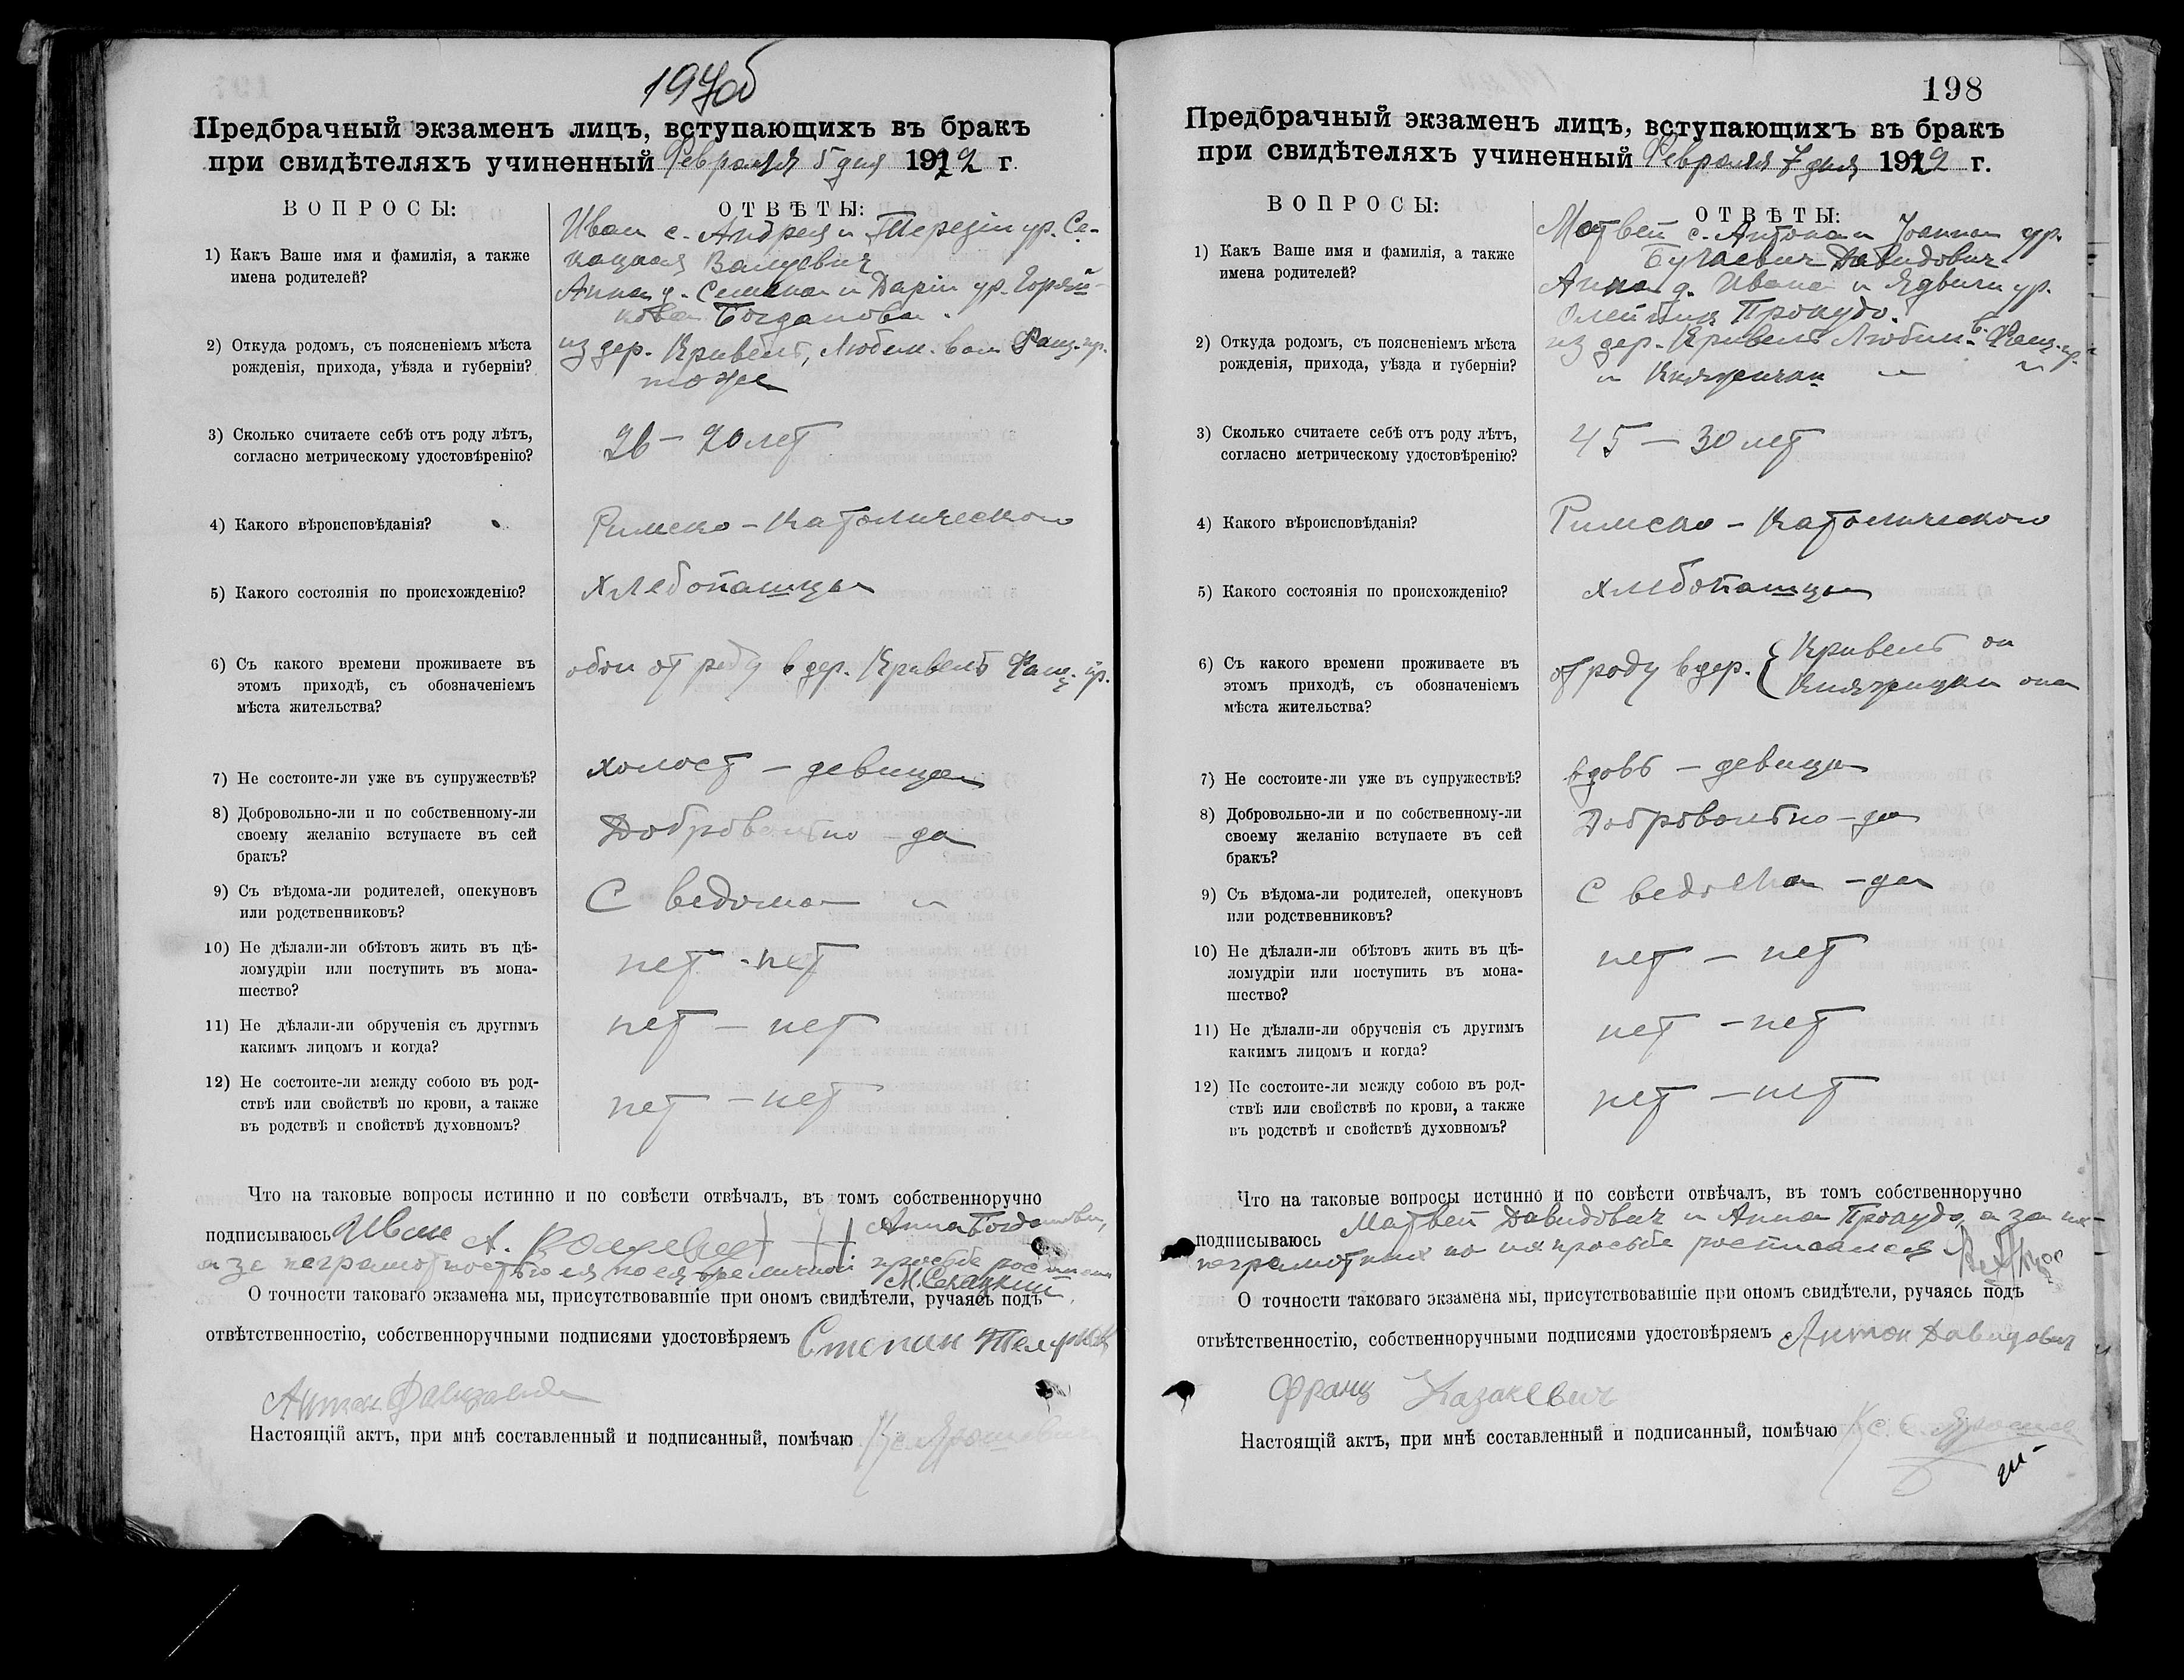 197об
Предбрачный экзаменъ лицъ, вступающихъ въ бракъ
при свидѣтеляхъ учиненный Февраля 5 дня 1922 г.
ВОПРОСЫ:
ОТВѢТЫ:
1) Какъ Ваше имя и фамилія, а также
имена родителей?
Иван с. Андрея и Терезіи ур. Се-
кацкая Валуевич
Анна д. Семена и Даріи ур. Горяй-
нова Богданова.
2) Откуда родомъ, съ поясненіемъ мѣста
рожденія, прихода, уѣзда и губерніи?
из дер. Кривель, Любин. вол. Фащ. пр.
тоже
3) Сколько считаете себѣ отъ роду лѣтъ,
согласно метрическому удостовѣренію?
26 – 20 лет
4) Какого вѣроисповѣданія?
Римско – Католического
5) Какого состоянія по происхожденію?
хлебопашцы
6) Съ какого времени проживаете въ
этомъ приходѣ, съ обозначеніемъ
мѣста жительства?
обои от роду в дер. Кривель Фащ. пр.
7) Не состоите-ли уже въ супружествѣ?
холост – девица
8) Добровольно-ли и по собственному-ли
своему желанію вступаете въ сей
бракъ?
Добровольно – да
9) Съ вѣдома-ли родителей, опекуновъ
или родственниковъ?
С ведома „
10) Не дѣлали-ли обѣтовъ жить въ цѣ-
ломудріи или поступить въ мона-
шество?
нет – нет
11) Не дѣлали-ли обрученія съ другимъ
какимъ лицомъ и когда?
нет – нет
12) Не состоите-ли между собою въ род-
ствѣ или свойствѣ по крови, а также
въ родствѣ и свойствѣ духовномъ?
нет – нет
Что на таковые вопросы истинно и по совѣсти отвѣчалъ, въ томъ собственноручно
подписываюсь Иван А. +++ Анна Богданова,
а за неграмотностью ея по ея личной просьбе
М. Секацкий
О точности таковаго экзамена мы, присутствовавшіе при ономъ свидѣтели, ручаясь подъ
отвѣтственностію, собственноручными подписями удостовѣряемъ Степан
Антон
Настоящій актъ, при мнѣ составленный и подписанный, помѣчаю Кс.
198
Предбрачный экзаменъ лицъ, вступающихъ въ бракъ
при свидѣтеляхъ учиненный Февраля 7 дня 1922 г.
ВОПРОСЫ:
ОТВѢТЫ:
1) Какъ Ваше имя и фамилія, а также
имена родителей?
Матвей с. Антона и Іоанны ур.
Бугаевич Давидович
Анна д. Ивана и Ядвиги ур.
Олейник Прокудо.
2) Откуда родомъ, съ поясненіемъ мѣста
рожденія, прихода, уѣзда и губерніи?
из дер. Кривель Любин. в. Фащ. пр.
и Княжицан „ „
3) Сколько считаете себѣ отъ роду лѣтъ,
согласно метрическому удостовѣренію?
45 – 30 лет
4) Какого вѣроисповѣданія?
Римско – Католического
5) Какого состоянія по происхожденію?
хлебопашцы
6) Съ какого времени проживаете въ
этомъ приходѣ, съ обозначеніемъ
мѣста жительства?
от роду в дер. { Кривель он
Княжицан она
7) Не состоите-ли уже въ супружествѣ?
вдовъ – девица
8) Добровольно-ли и по собственному-ли
своему желанію вступаете въ сей
бракъ?
Добровольно – да
9) Съ вѣдома-ли родителей, опекуновъ
или родственниковъ?
С ведома – да
10) Не дѣлали-ли обѣтовъ жить въ цѣ-
ломудріи или поступить въ мона-
шество?
нет – нет
11) Не дѣлали-ли обрученія съ другимъ
какимъ лицомъ и когда?
нет – нет
12) Не состоите-ли между собою въ род-
ствѣ или свойствѣ по крови, а также
въ родствѣ и свойствѣ духовномъ?
нет – нет
Что на таковые вопросы истинно и по совѣсти отвѣчалъ, въ томъ собственноручно
подписываюсь Матвей Давидович и Анна Прокудо, а за их
неграмотных по их просьбе росписался
О точности таковаго экзамена мы, присутствовавшіе при ономъ свидѣтели, ручаясь подъ
отвѣтственностію, собственноручными подписями удостовѣряемъ Антон Давидович
Франц Казакевич
Настоящій актъ, при мнѣ составленный и подписанный, помѣчаю Кс.